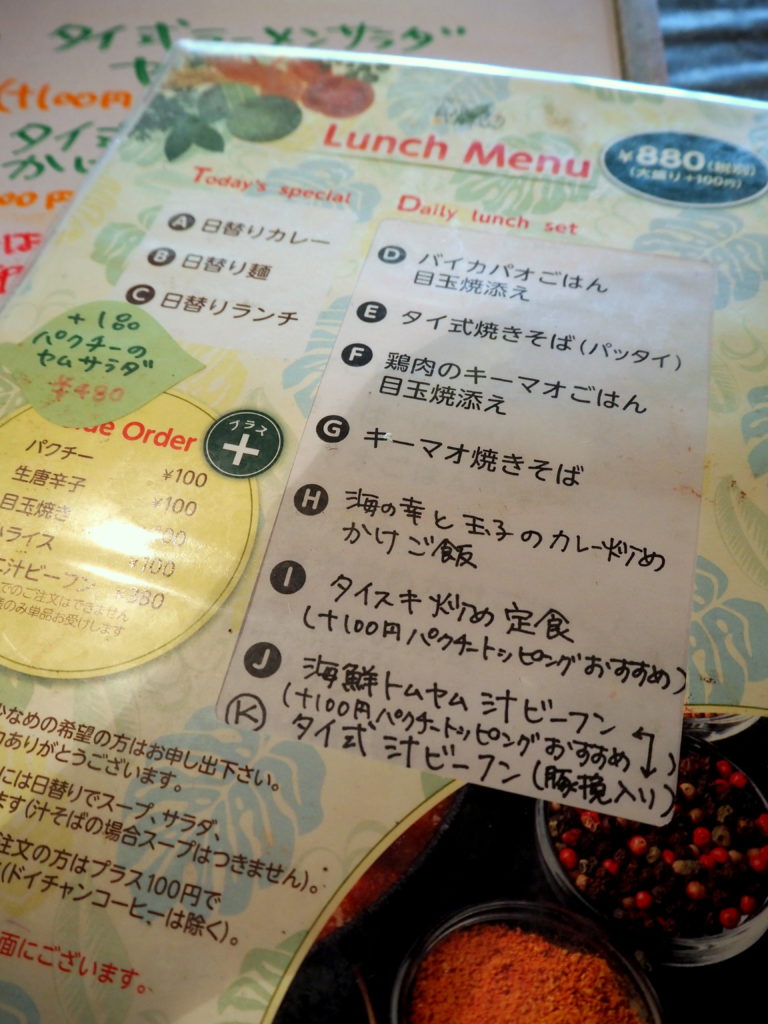 タイ式ラーメンサラダ
(+100円
タイ式
Lunch Menu
¥880(税別)
(大盛り+100円)
Today's special
A 日替りカレー
B 日替り麺
C 日替りランチ
Daily lunch set
D バイカパオごはん
目玉焼添え
E タイ式焼きそば(パッタイ)
F 鶏肉のキーマオごはん
目玉焼添え
G キーマオ焼きそば
H 海の幸と玉子のカレー炒め
かけご飯
I タイスキ炒め定食
(+100円パクチートッピングおすすめ)
J 海鮮トムヤム汁ビーフン
(+100円パクチートッピングおすすめ)
K タイ式汁ビーフン(豚挽入り)
+1品
パクチーの
ヤムサラダ
¥480
Order
プラス
+
パクチー ¥100
生唐辛子 ¥100
目玉焼き
ライス ¥100
汁ビーフン
でのご注文はできません
のみ単品お受けします
なめの希望の方はお申し出下さい。
ありがとうございます。
には日替りでスープ、サラダ、
ます(汁そばの場合スープはつきません)。
注文の方はプラス100円で
(ドイチャンコーヒーは除く)。
面にございます。